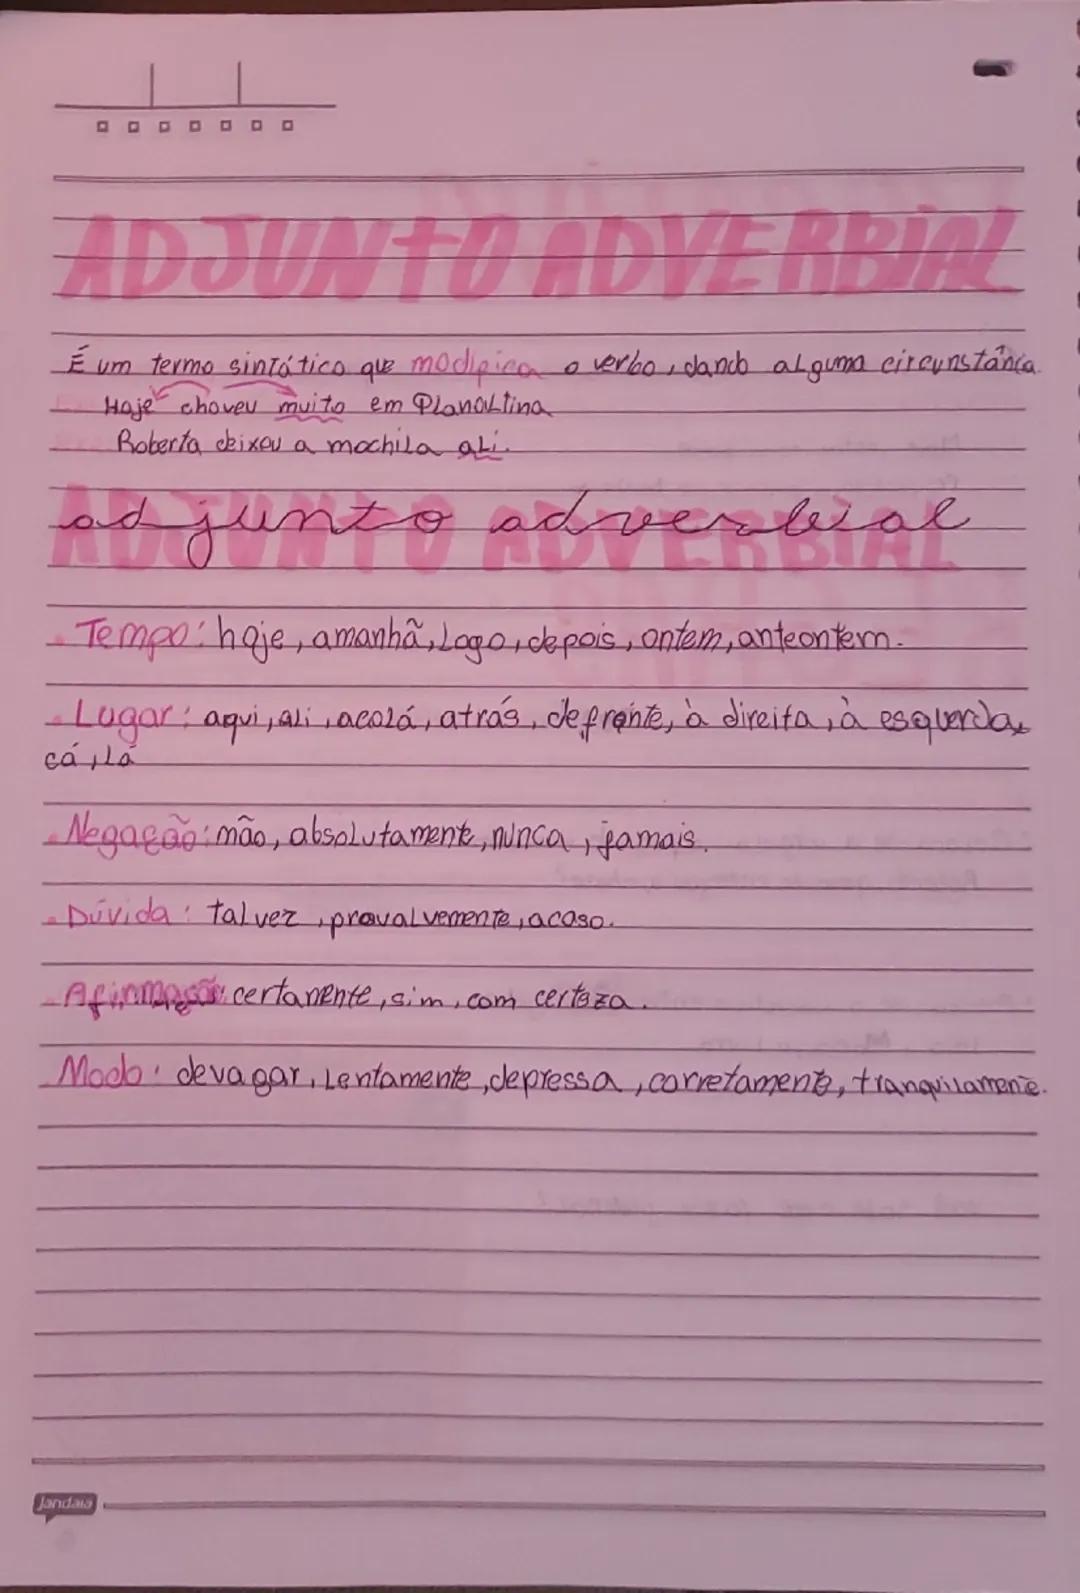 ADJUNTO ADVERBIAL
É um termo sintático que modifica o verbo, dando alguma circunstância.
Hoje choveu muito em Planaltina
Roberta deixou a mochila ali.
ADJUNTO ADVERBIAL
adjunto adverbial
Tempo: hoje, amanhã, logo, depois, ontem, anteontem.
Lugar: aqui, ali, acolá, atrás, defronte, à direita, à esquerda,
cá, lá
Negação: não, absolutamente, nunca, jamais.
Dúvida: talvez, provalvemente, acaso.
Afirmação: certamente, sim, com certeza.
Modo: devagar, lentamente, depressa, corretamente, tranquilamente.
Jandaia